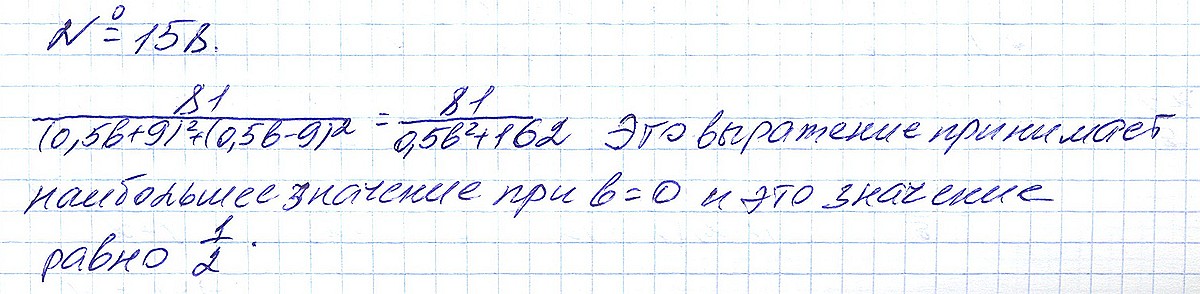 № 158.
81/((0,5b+9)²+(0,5b-9)²) = 81/(0,5b²+162) Это выражение принимает
наибольшее значение при b=0 и это значение
равно 1/2.